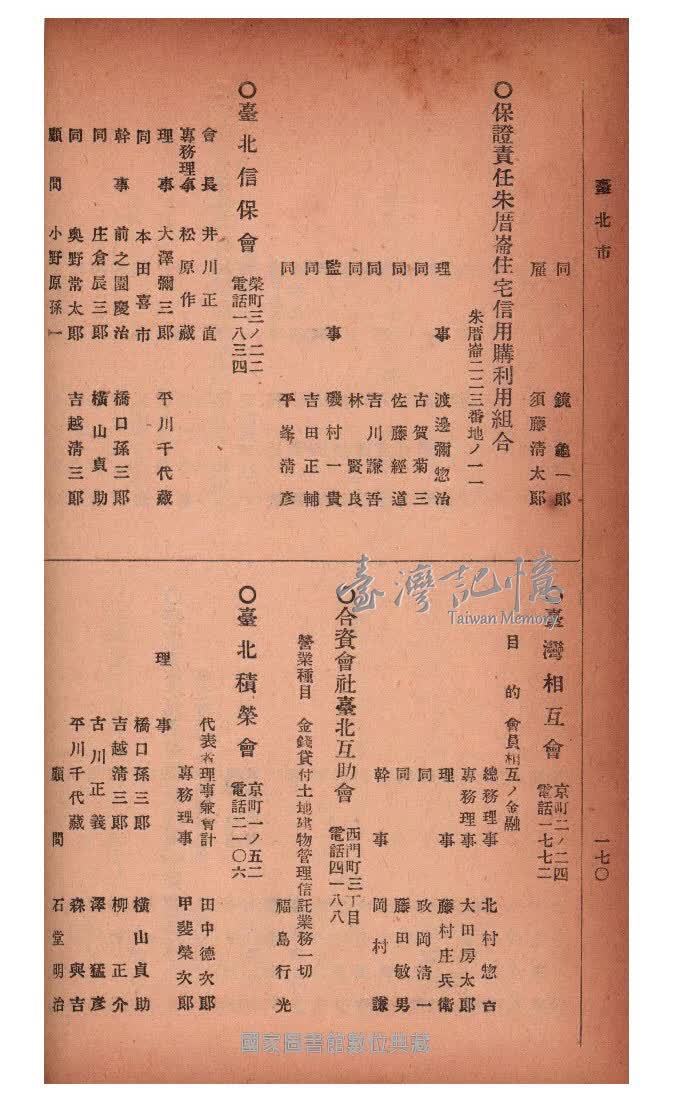 臺北市
一七〇
同 鏡龜一郎
雇 須藤清太郎
〇保證責任朱厝崙住宅信用購利用組合
朱厝崙二二三番地ノ一一
理事 渡邊彌惣治
同 古賀菊三
同 佐藤經道
同 吉川謙吾
同 林賢良
監事 磯村一貴
同 吉田正輔
同 平峯清彥
〇臺北信保會
榮町三ノ二二
電話一八三四
會長 井川正直
專務理事 松原作藏
理事 大澤彌三郎 平川千代藏
同 本田喜市
幹事 前之園慶治 橋口孫三郎
同 庄倉辰三郎 橫山貞助
同 奧野常太郎 吉越清三郎
顧問 小野原孫一
〇臺灣相互會
京町二ノ二四
電話一七七二
目的 會員相互ノ金融
總務理事 北村惣吉
專務理事 大田房太郎
理事 藤村庄兵衛
同 政岡清一
同 藤田敏男
幹事 岡村謙
〇合資會社臺北互助會
西門町三丁目
電話四一八八
營業種目 金錢貸付土地建物管理信託業務一切
福島行光
〇臺北積榮會
京町一ノ五二
電話二一〇六
代表者理事兼會計 田中德次郎
專務理事 甲斐榮次郎
理事 橋口孫三郎 橫山貞助
吉越清三郎 柳正介
古川正義 澤猛彥
平川千代藏 森與吉
顧問 石堂明治
臺灣記憶
Taiwan Memory
國家圖書館數位典藏